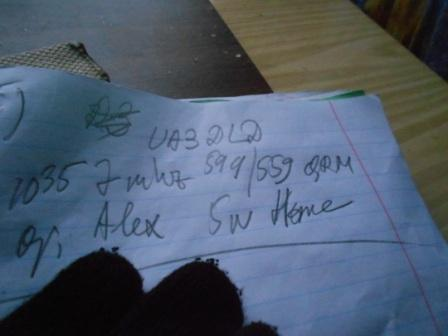 5)
UA3DLD
1035 7 mhz 599/559 QRM
op; Alex 5W Home